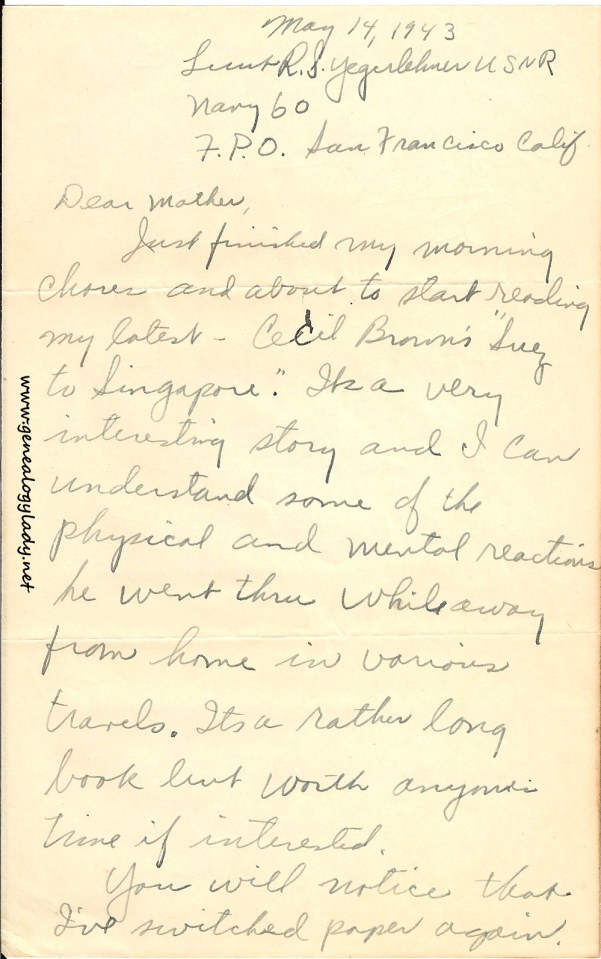 May 14, 1943
Lieut R. S. Yegerlehner USNR
Navy 60
F.P.O. San Francisco Calif.
Dear Mother,
Just finished my morning
chores and about to start reading
my latest - Cecil Brown's "Suez
to Singapore". Its a very
interesting story and I can
understand some of the
physical and mental reactions
he went thru while away
from home in various
travels. Its a rather long
book but worth anyone's
time if interested.
You will notice that
I've switched paper again.
www.genealogylady.net